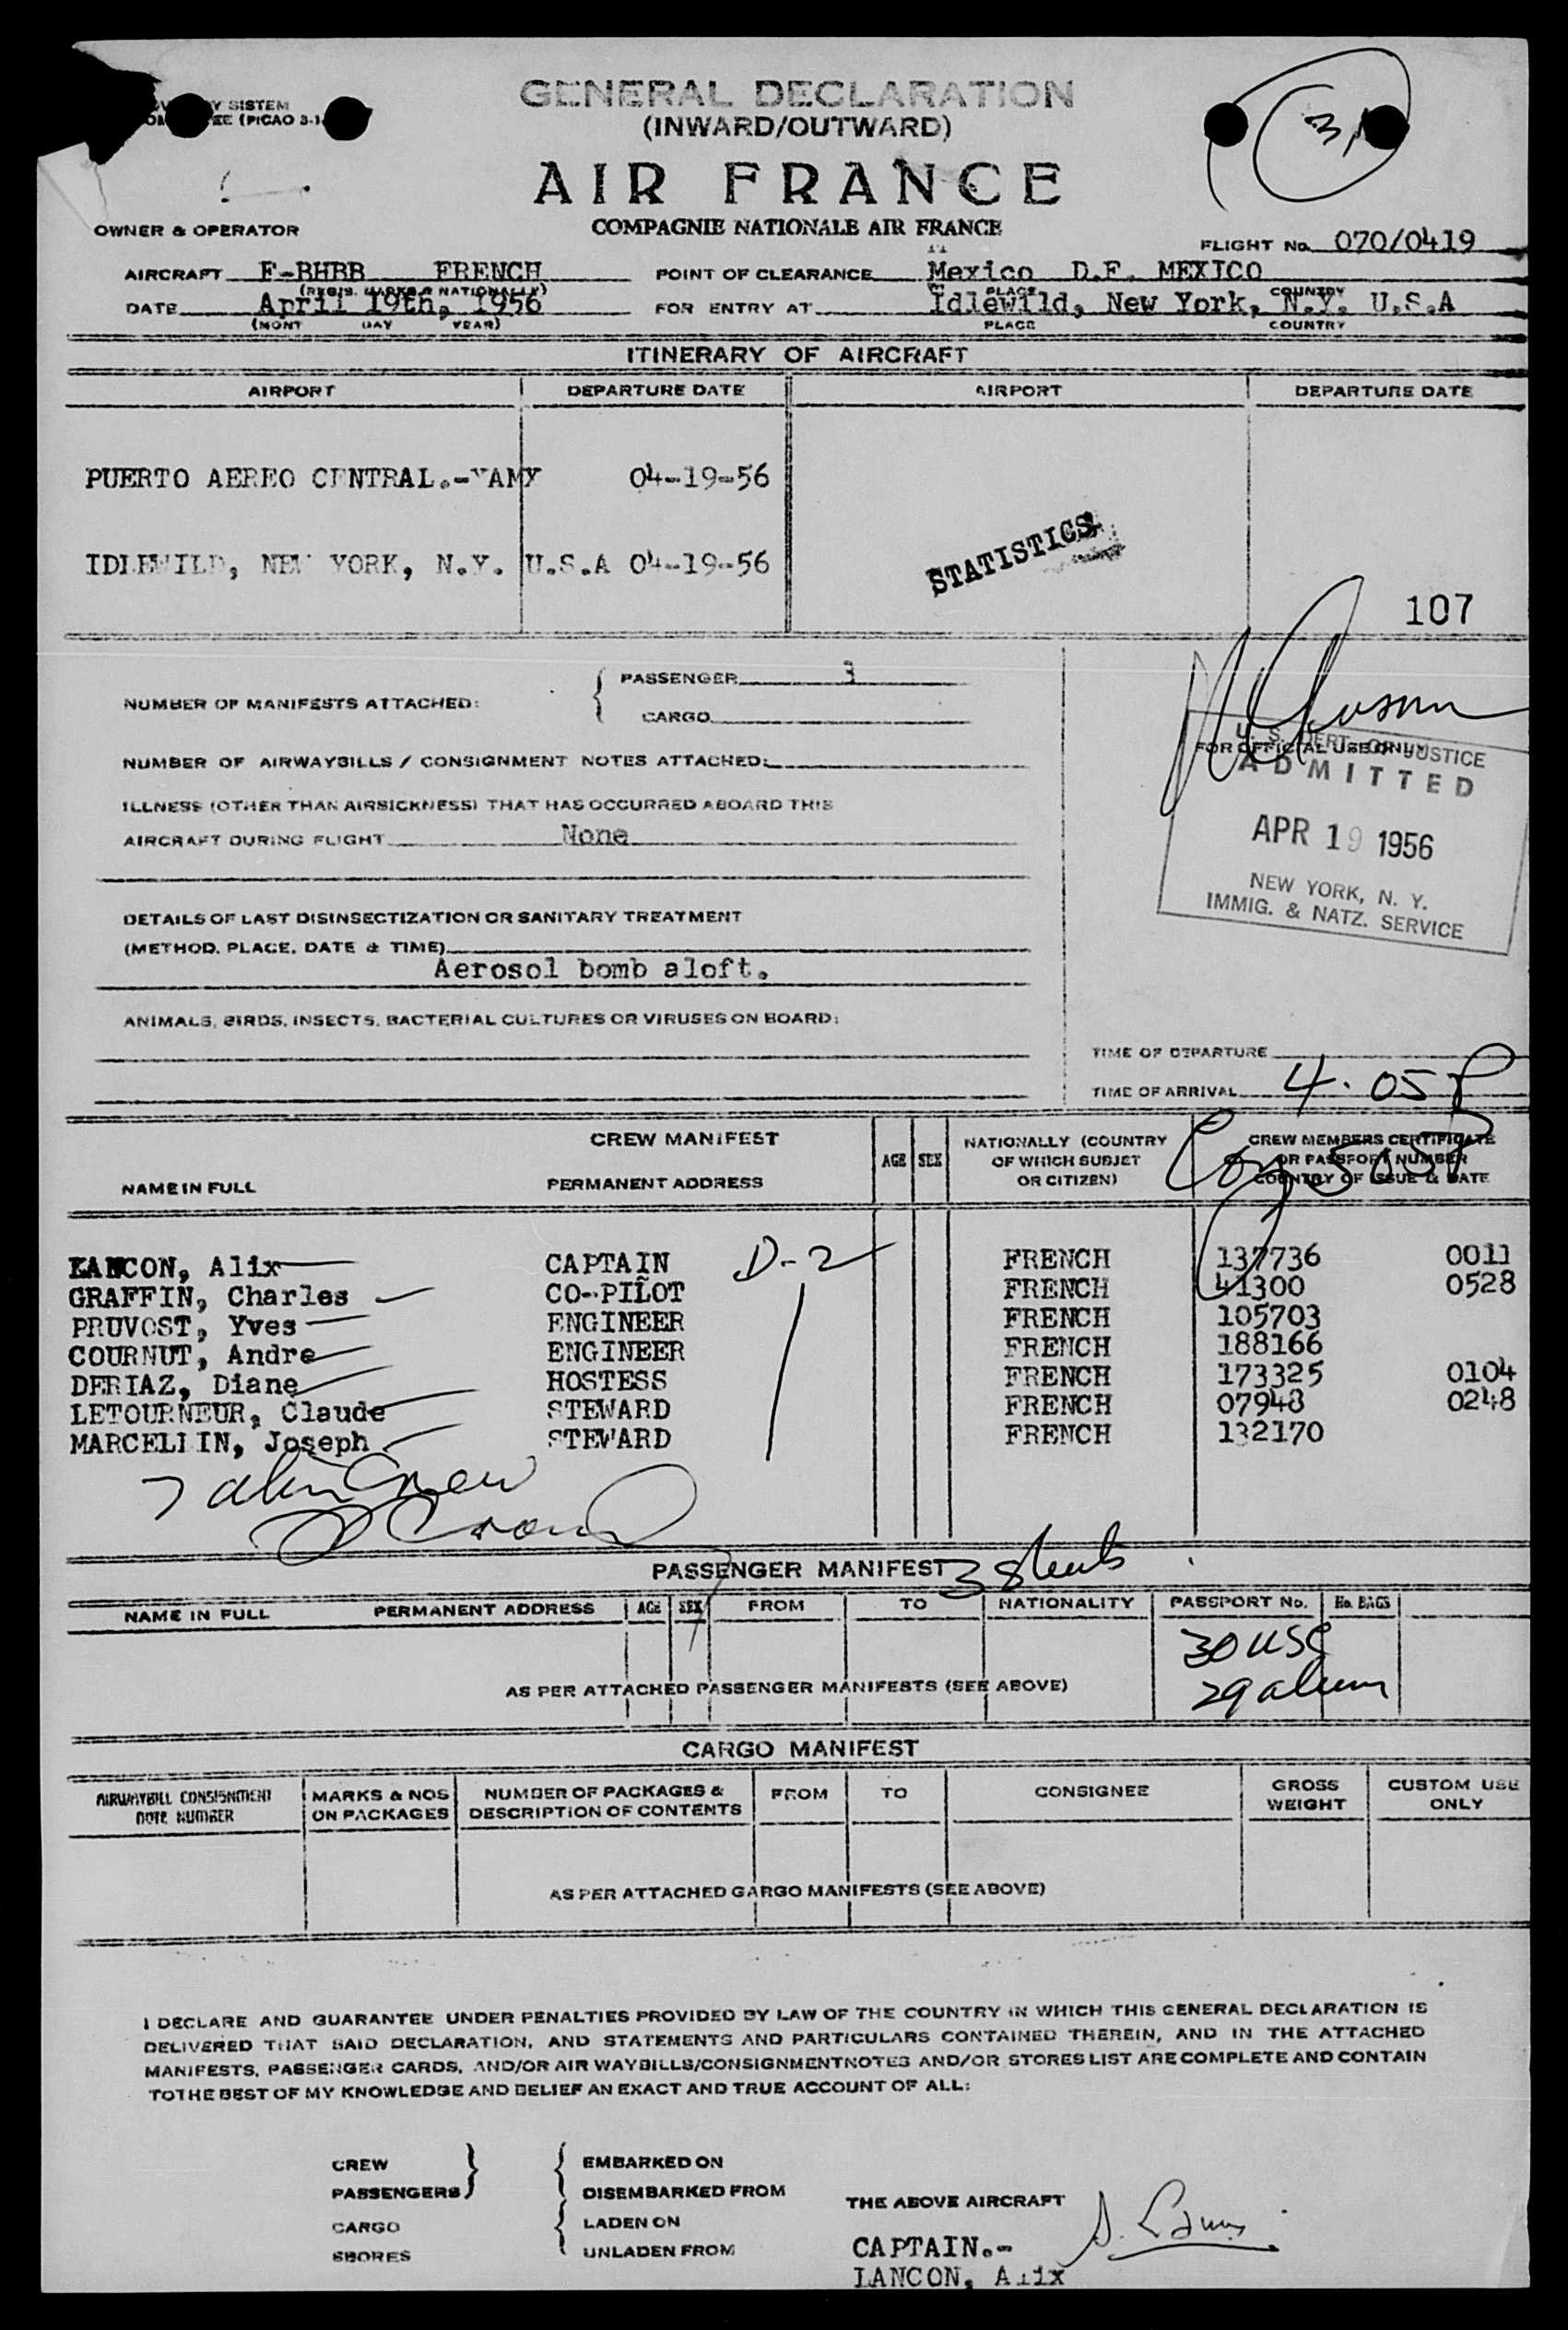 Y SISTEM
EE (PICAO 3-1
GENERAL DECLARATION
(INWARD/OUTWARD)
AIR FRANCE
COMPAGNIE NATIONALE AIR FRANCE
OWNER & OPERATOR
FLIGHT No. 070/0419
AIRCRAFT F-BHBB FRENCH POINT OF CLEARANCE Mexico D.F. MEXICO
(REGIS. MARKS & NATIONALLY) PLACE COUNTRY
DATE April 19th, 1956 FOR ENTRY AT Idlewild, New York, N.Y. U.S.A
(MONT DAY YEAR) PLACE COUNTRY
ITINERARY OF AIRCRAFT
AIRPORT DEPARTURE DATE AIRPORT DEPARTURE DATE
PUERTO AEREO CENTRAL.- 04-19-56
STATISTICS
IDLEWILD, NEW YORK, N.Y. U.S.A 04-19-56
107
NUMBER OF MANIFESTS ATTACHED: PASSENGER 3
CARGO
FOR OFFICIAL USE ONLY
U. S. DEPT. OF JUSTICE
ADMITTED
APR 19 1956
NEW YORK, N. Y.
IMMIG. & NATZ. SERVICE
NUMBER OF AIRWAYBILLS / CONSIGNMENT NOTES ATTACHED:
ILLNESS (OTHER THAN AIRSICKNESS) THAT HAS OCCURRED ABOARD THIS
AIRCRAFT DURING FLIGHT None
DETAILS OF LAST DISINSECTIZATION OR SANITARY TREATMENT
(METHOD, PLACE, DATE & TIME)
Aerosol bomb aloft.
ANIMALS, BIRDS, INSECTS, BACTERIAL CULTURES OR VIRUSES ON BOARD:
TIME OF DEPARTURE
TIME OF ARRIVAL 4.05 P
CREW MANIFEST
NAME IN FULL PERMANENT ADDRESS AGE SEX NATIONALLY (COUNTRY OF WHICH SUBJET OR CITIZEN) CREW MEMBERS CERTIFICATE OR PASSPORT NUMBER COUNTRY OF ISSUE & DATE
LANCON, Alix CAPTAIN D-2 FRENCH 137736 0011
GRAFFIN, Charles CO-PILOT FRENCH 41300 0528
PRUVOST, Yves ENGINEER FRENCH 105703
COURNUT, Andre ENGINEER FRENCH 188166
DERIAZ, Diane HOSTESS FRENCH 173325 0104
LETOURNEUR, Claude STEWARD FRENCH 07948 0248
MARCELLIN, Joseph STEWARD FRENCH 132170
7 alien Crew
PASSENGER MANIFEST 3 sheets
NAME IN FULL PERMANENT ADDRESS AGE SEX FROM TO NATIONALITY PASSPORT No. No. BAGS
30 USC
29 alien
AS PER ATTACHED PASSENGER MANIFESTS (SEE ABOVE)
CARGO MANIFEST
AIRWAYBILL CONSIGNMENT NOTE NUMBER MARKS & NOS ON PACKAGES NUMBER OF PACKAGES & DESCRIPTION OF CONTENTS FROM TO CONSIGNEE GROSS WEIGHT CUSTOM USE ONLY
AS PER ATTACHED GARGO MANIFESTS (SEE ABOVE)
I DECLARE AND GUARANTEE UNDER PENALTIES PROVIDED BY LAW OF THE COUNTRY IN WHICH THIS GENERAL DECLARATION IS
DELIVERED THAT SAID DECLARATION, AND STATEMENTS AND PARTICULARS CONTAINED THEREIN, AND IN THE ATTACHED
MANIFESTS, PASSENGER CARDS, AND/OR AIR WAYBILLS/CONSIGNMENTNOTES AND/OR STORES LIST ARE COMPLETE AND CONTAIN
TO THE BEST OF MY KNOWLEDGE AND BELIEF AN EXACT AND TRUE ACCOUNT OF ALL:
CREW EMBARKED ON
PASSENGERS DISEMBARKED FROM
THE ABOVE AIRCRAFT
CARGO LADEN ON
SHORES UNLADEN FROM
CAPTAIN.-
LANCON, Alix